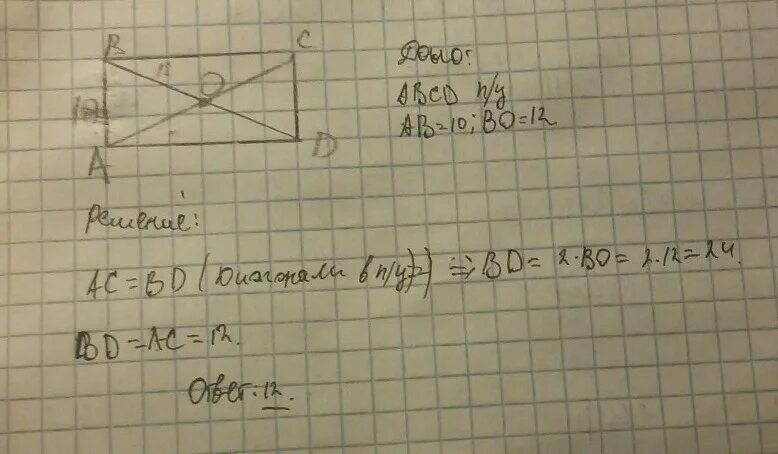 B C
O
10
A D
Дано:
ABCD п/у
AB=10; BO=12
Решение:
AC=BD (Диагонали в п/у) ⇒ BD= 2·BO= 2·12=24.
BD=AC=12.
Ответ: 12.